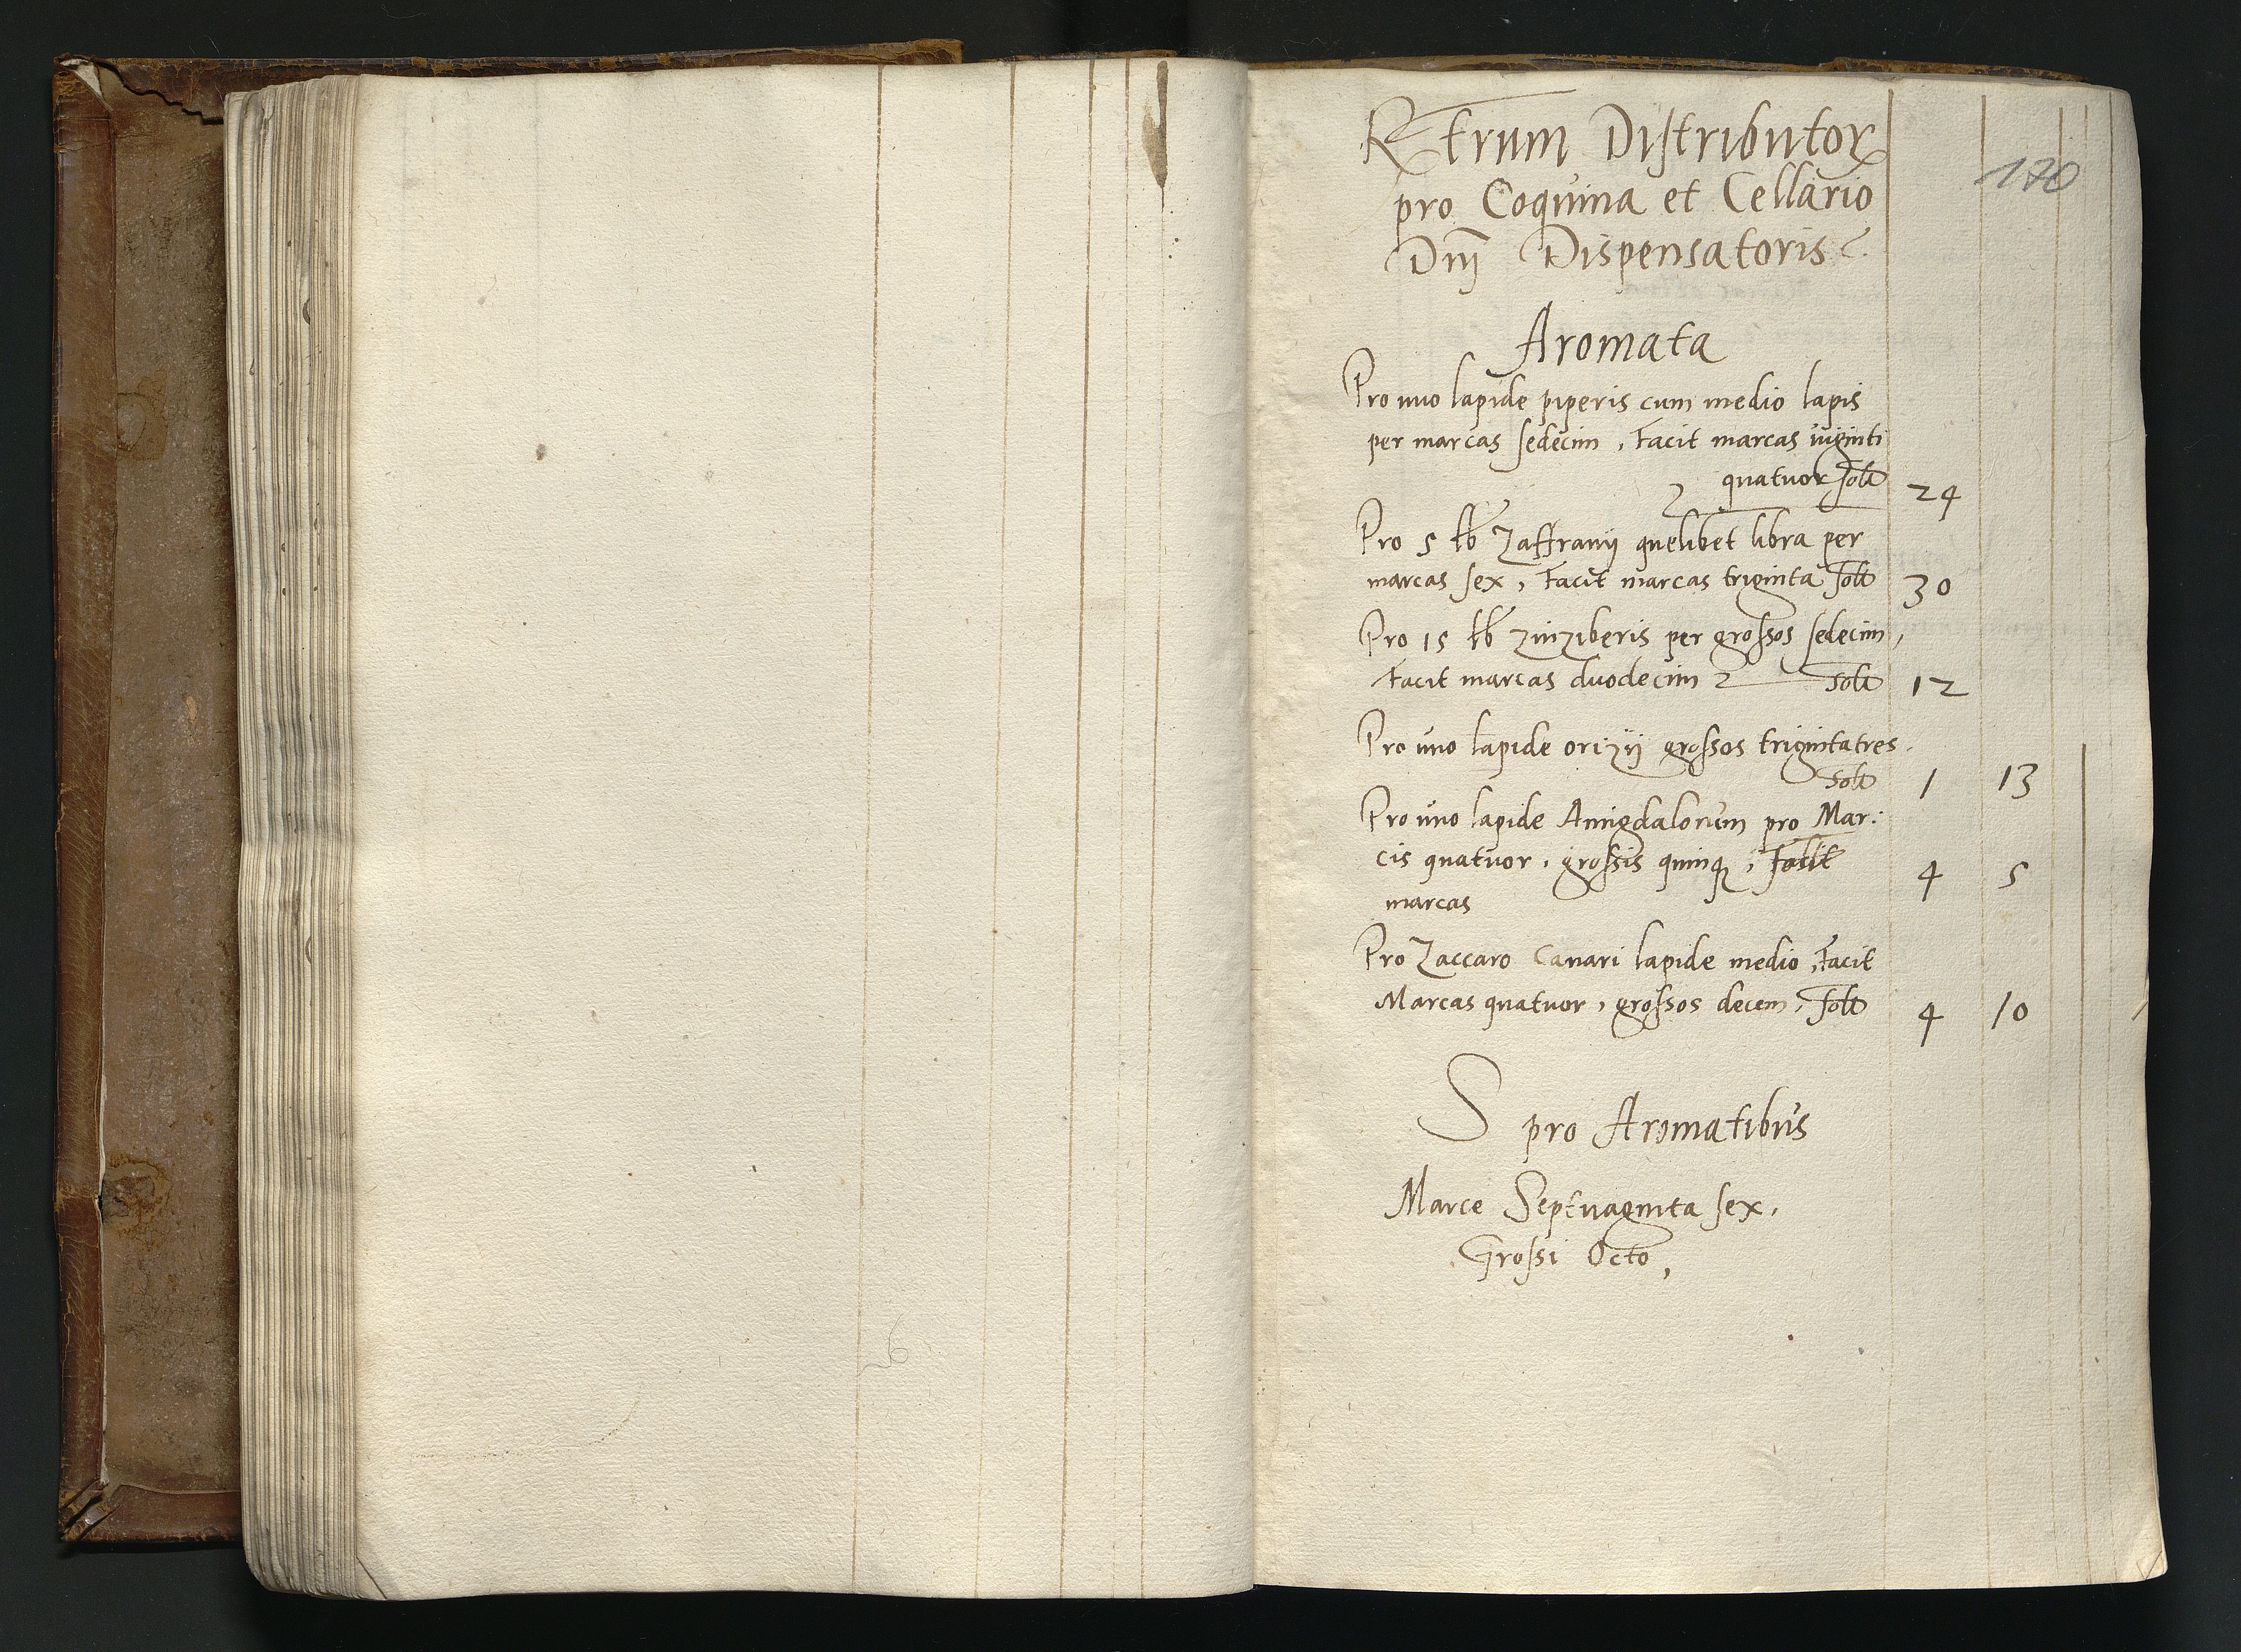 Rtrum Distributor
pro Coquina et Cellario
Dnj Dispensatoris
170
Aromata
Pro uno lapide piperis cum medio lapis
per marcas sedecim, Facit marcas viginti
quatuor solt 24
Pro 5 lb Zaffranij quelibet libra per
marcas sex, Facit marcas triginta solt 30
Pro 15 lb zinziberis per grossos sedecim,
Facit marcas duodecim solt 12
Pro uno lapide orizij grossos trigintatres.
solt 1 13
Pro uno lapide Amigdalorum pro Mar:
cis quatuor, grossis quinq, Facit 4 5
marcas
Pro Zaccaro Canari lapide medio, Facit
Marcas quatuor, grossos decem, solt 4 10
S pro Aromatibus
Marce Septuaginta sex,
Grossi Octo,